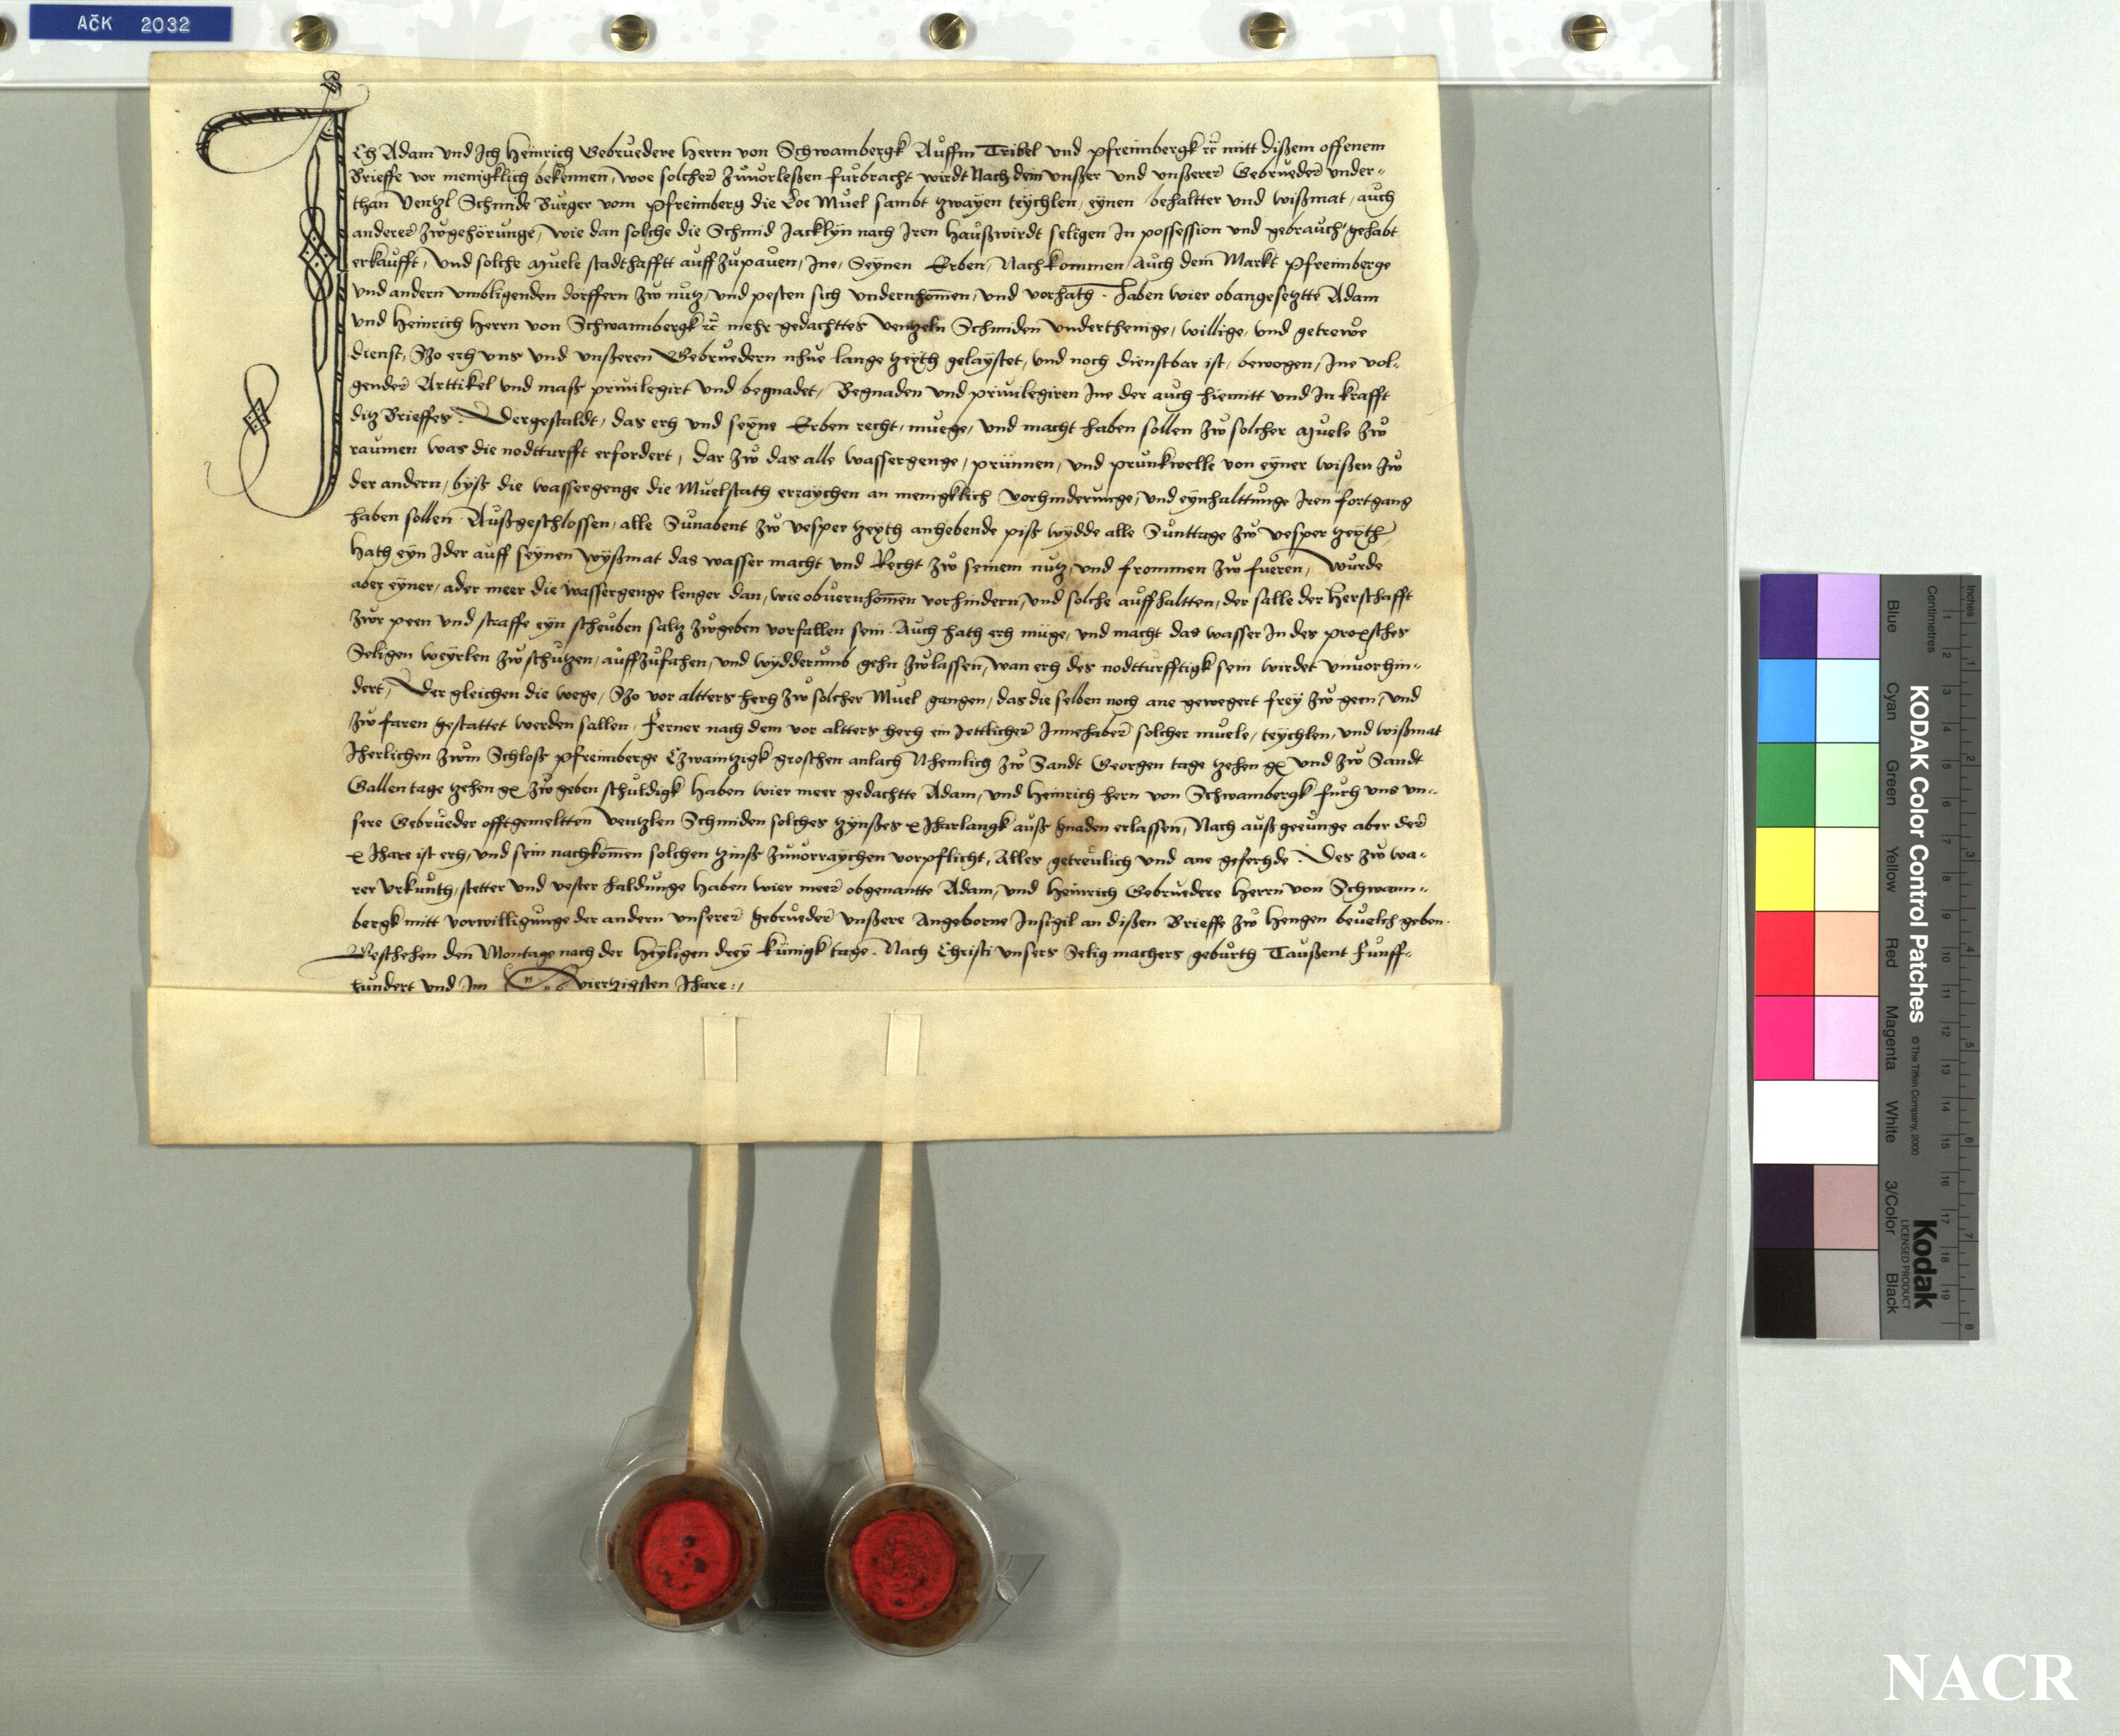 AČK 2032
ICh Adam vnd Ich Heinrich Gebruedere Herrn von Schwambergk Auffm Tribel vnd pfreimbergk rc mitt dißem offenem
Brieffe vor menigklich bekennen, woe solcher zuuorleßen furbracht wirdt Nach dem vnßer vnd vnßerer Gebrueder vnder-
than Ventzl Schmide Burger vom Pfreimberg die Loe Muel sambt zwayen teychlen, eynen behaltter vnd wißmat, auch
anderer zwgehörunge, wie dan solche die Schmid Jacklyn nach Iren Haußwirdt seligen In possession vnd gebrauch gehabt
erkaufft, vnd solche Muele stadthafftt auff zupauen, Ine, Seynen Erben, Nachkommen, Auch dem Markt Pfreimberge
vnd andern vmbligenden dörffern zw nutz, vnd pesten sich vndernhomen, vnd vorhath. Haben wier obangesetztte Adam
vnd Heinrich Herrn von Schwambergk rc mehr gedachttes ventzeln Schmiden vnderthenige, willige, vnd getrewe
dienst, Szo erh vns vnd vnßeren Gebruedern nhue lange tzeyth gelaystet, vnd noch dienstbar ist, bewogen, Ine vol-
gender Arttikel vnd maß priuilegirt vnd begnadet, Begnaden vnd priuilegiren Ine der auch hiemitt vnd In krafft
ditz Brieffes. Dergestaldt, das erh vnd seyne Erben recht, muege, vnd macht haben sollen zw solcher Muele zw
raumen was die nodtturfft erfordert, dar zw das alle wassergenge, prunnen, vnd prunkwelle von eyner wißen zw
der andern, byß die wassergenge die Muelstath erraychen an menigklich vorhinderunge, vnd eynhalttunge Iren fortgang
haben sollen. Außgeschlossen, alle Sunabent zw vesper tzeyth anhebende piß wydde alle Sunttage zw vesper tzeyth,
Hath eyn Ider auff seynen wyßmat das wasser macht vnd Recht zw seinem nutz, vnd frommen zw fueren, Wurde
aber eyner, ader meer die wassergenge lenger dan, wie obuernhomen vorhindern, vnd solche auffhaltten, der salle der Herschafft
zwr peen vnd straffe eyn scheuben saltz zwgeben vorfallen sein. Auch hath erh müge, vnd macht das wasser In des proxsches
Seligen weyrlen zw schutzen, auffzufahen, vnd wydderumb gehn zwlassen, wan erh des nodtturfftigk sein wirdet vnuorhin-
dert, Der gleichen die wege, Szo vor altters herh zw solcher Muel gangen, das die selben noch ane gewegert frey zw geen, vnd
zw faren gestattet werden sallen. Ferner nach dem vor altters herh ein Jettlicher Innehaber solcher muele, teychlen, vnd wißmat
Iherlichen zwm Schloß Pfreimberge Czwaintzigk groschen anlach Nhemlich zw Sandt Georgen tage tzehen gr vnd zw Sandt
Gallen tage tzehen gr zw geben schuldigk Haben wier meer gedachtte Adam, vnd Heinrich hern von Schwambergk furh vns vn-
sere Gebrueder offtgemeltten ventzlen Schmiden solches zynßes x Iharlangk auß gnaden erlassen, Nach auß geeunge aber der
x Ihare ist erh, vnd sein nachkomen solchen zinß zuuorraychen vorpflicht, Alles getreulich vnd ane geferhde. Des zw wa-
rer vrkunth, stetter vnd vester haldunge Haben wier meer obgenantte Adam, vnd Heinrich Gebruedere Herrn von Schwam-
bergk mitt vorwilligunge der andern vnserer gebrueder vnßere Angeborne Insigil an dißen Brieffe zw Hengen beuelch geben.
Geschehen den Montage nach der Heyligen drey Künigk tage. Nach Christi vnsers Selig machers geburth Taußent Funff-
hundert vnd Im vierzigsten Ihare
Inches
Centimetres
KODAK Color Control Patches
© The Tiffen Company, 2000
Kodak
LICENSED PRODUCT
Blue
Cyan
Green
Yellow
Red
Magenta
White
3/Color
Black
NACR